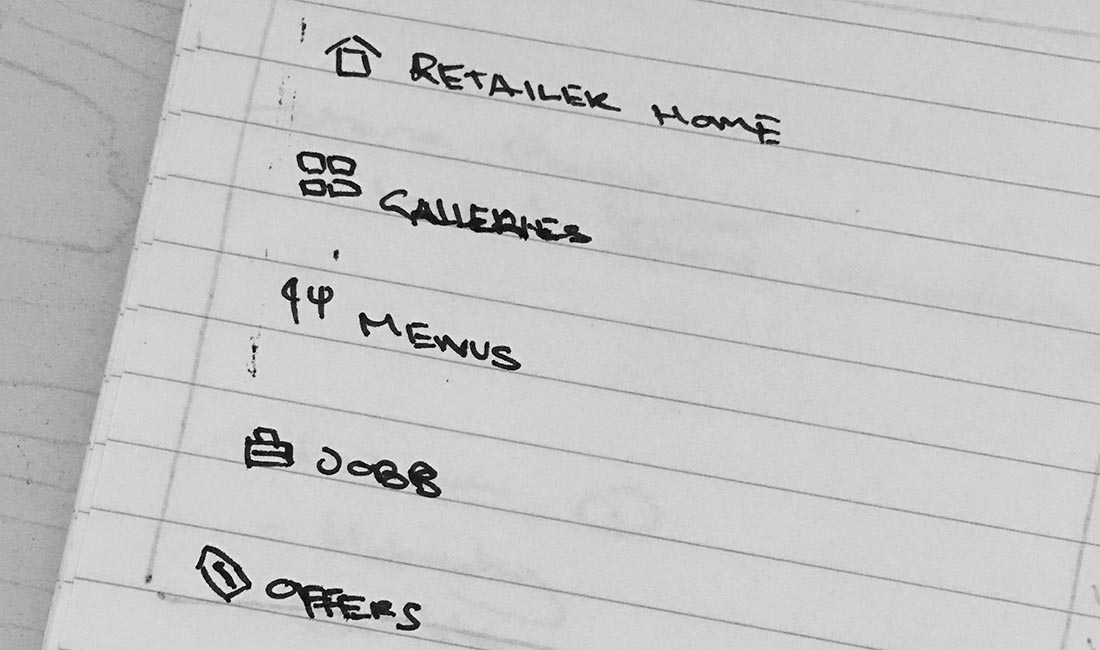 RETAILER HOME
GALLERIES
MENUS
JOBS
OFFERS